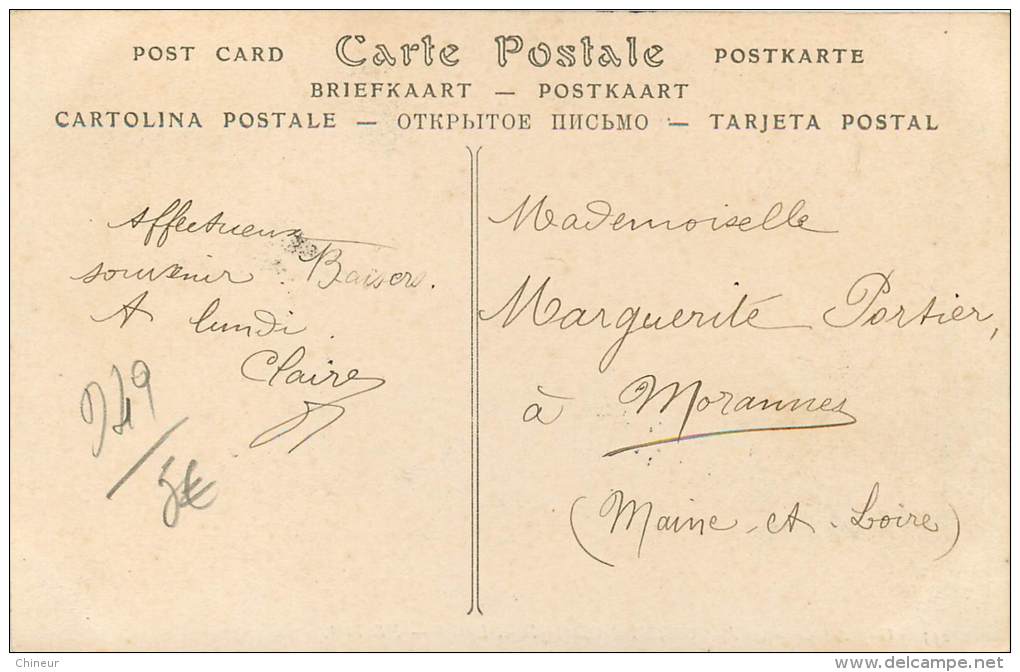 POST CARD Carte Postale POSTKARTE
BRIEFKAART — POSTKAART
CARTOLINA POSTALE — ОТКРЫТОЕ ПИСЬМО — TARJETA POSTAL
Affectueux
souvenir Baisers.
A lundi.
Claire
5€
Mademoiselle
Marguerite Portier,
à Morannes
(Maine-et-Loire)
Chineur
www.delcampe.net